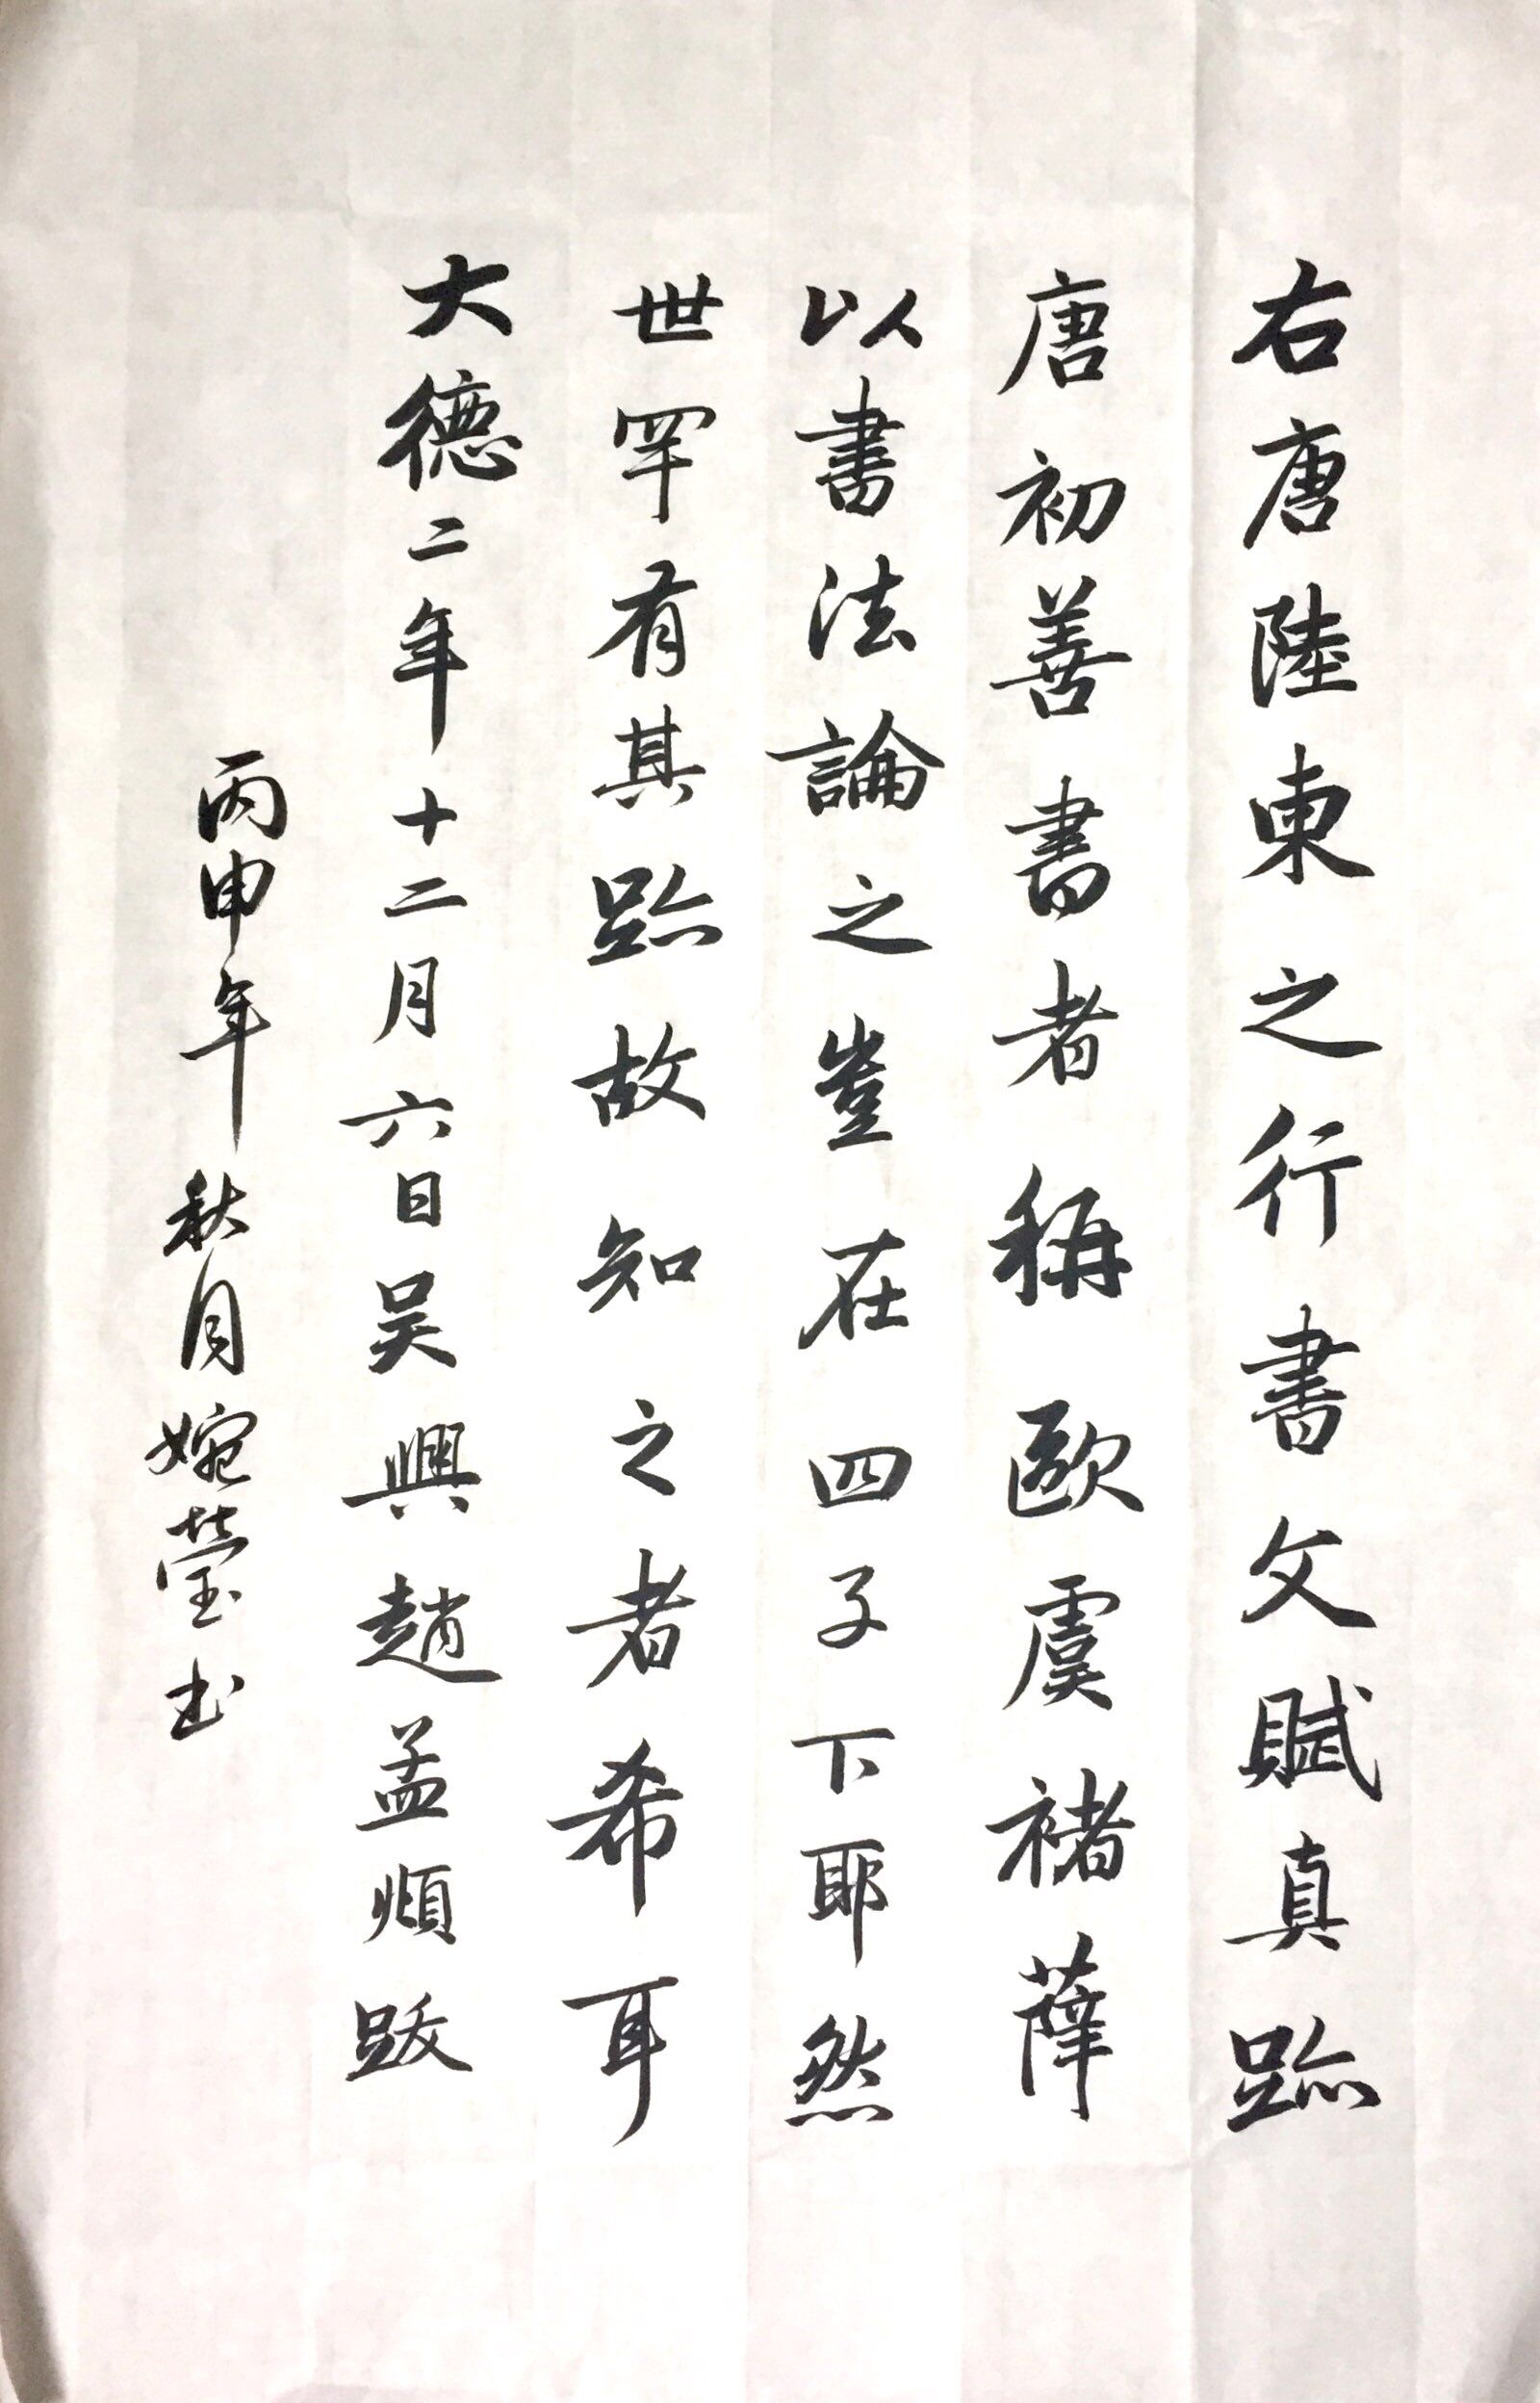 右唐陸東之行書文賦真跡
唐初善書者稱歐虞褚薛
以書法論之豈在四子下耶然
世罕有其跡故知之者希耳
大德二年十二月六日吴興趙孟頫跋
丙申年秋月婉莹书